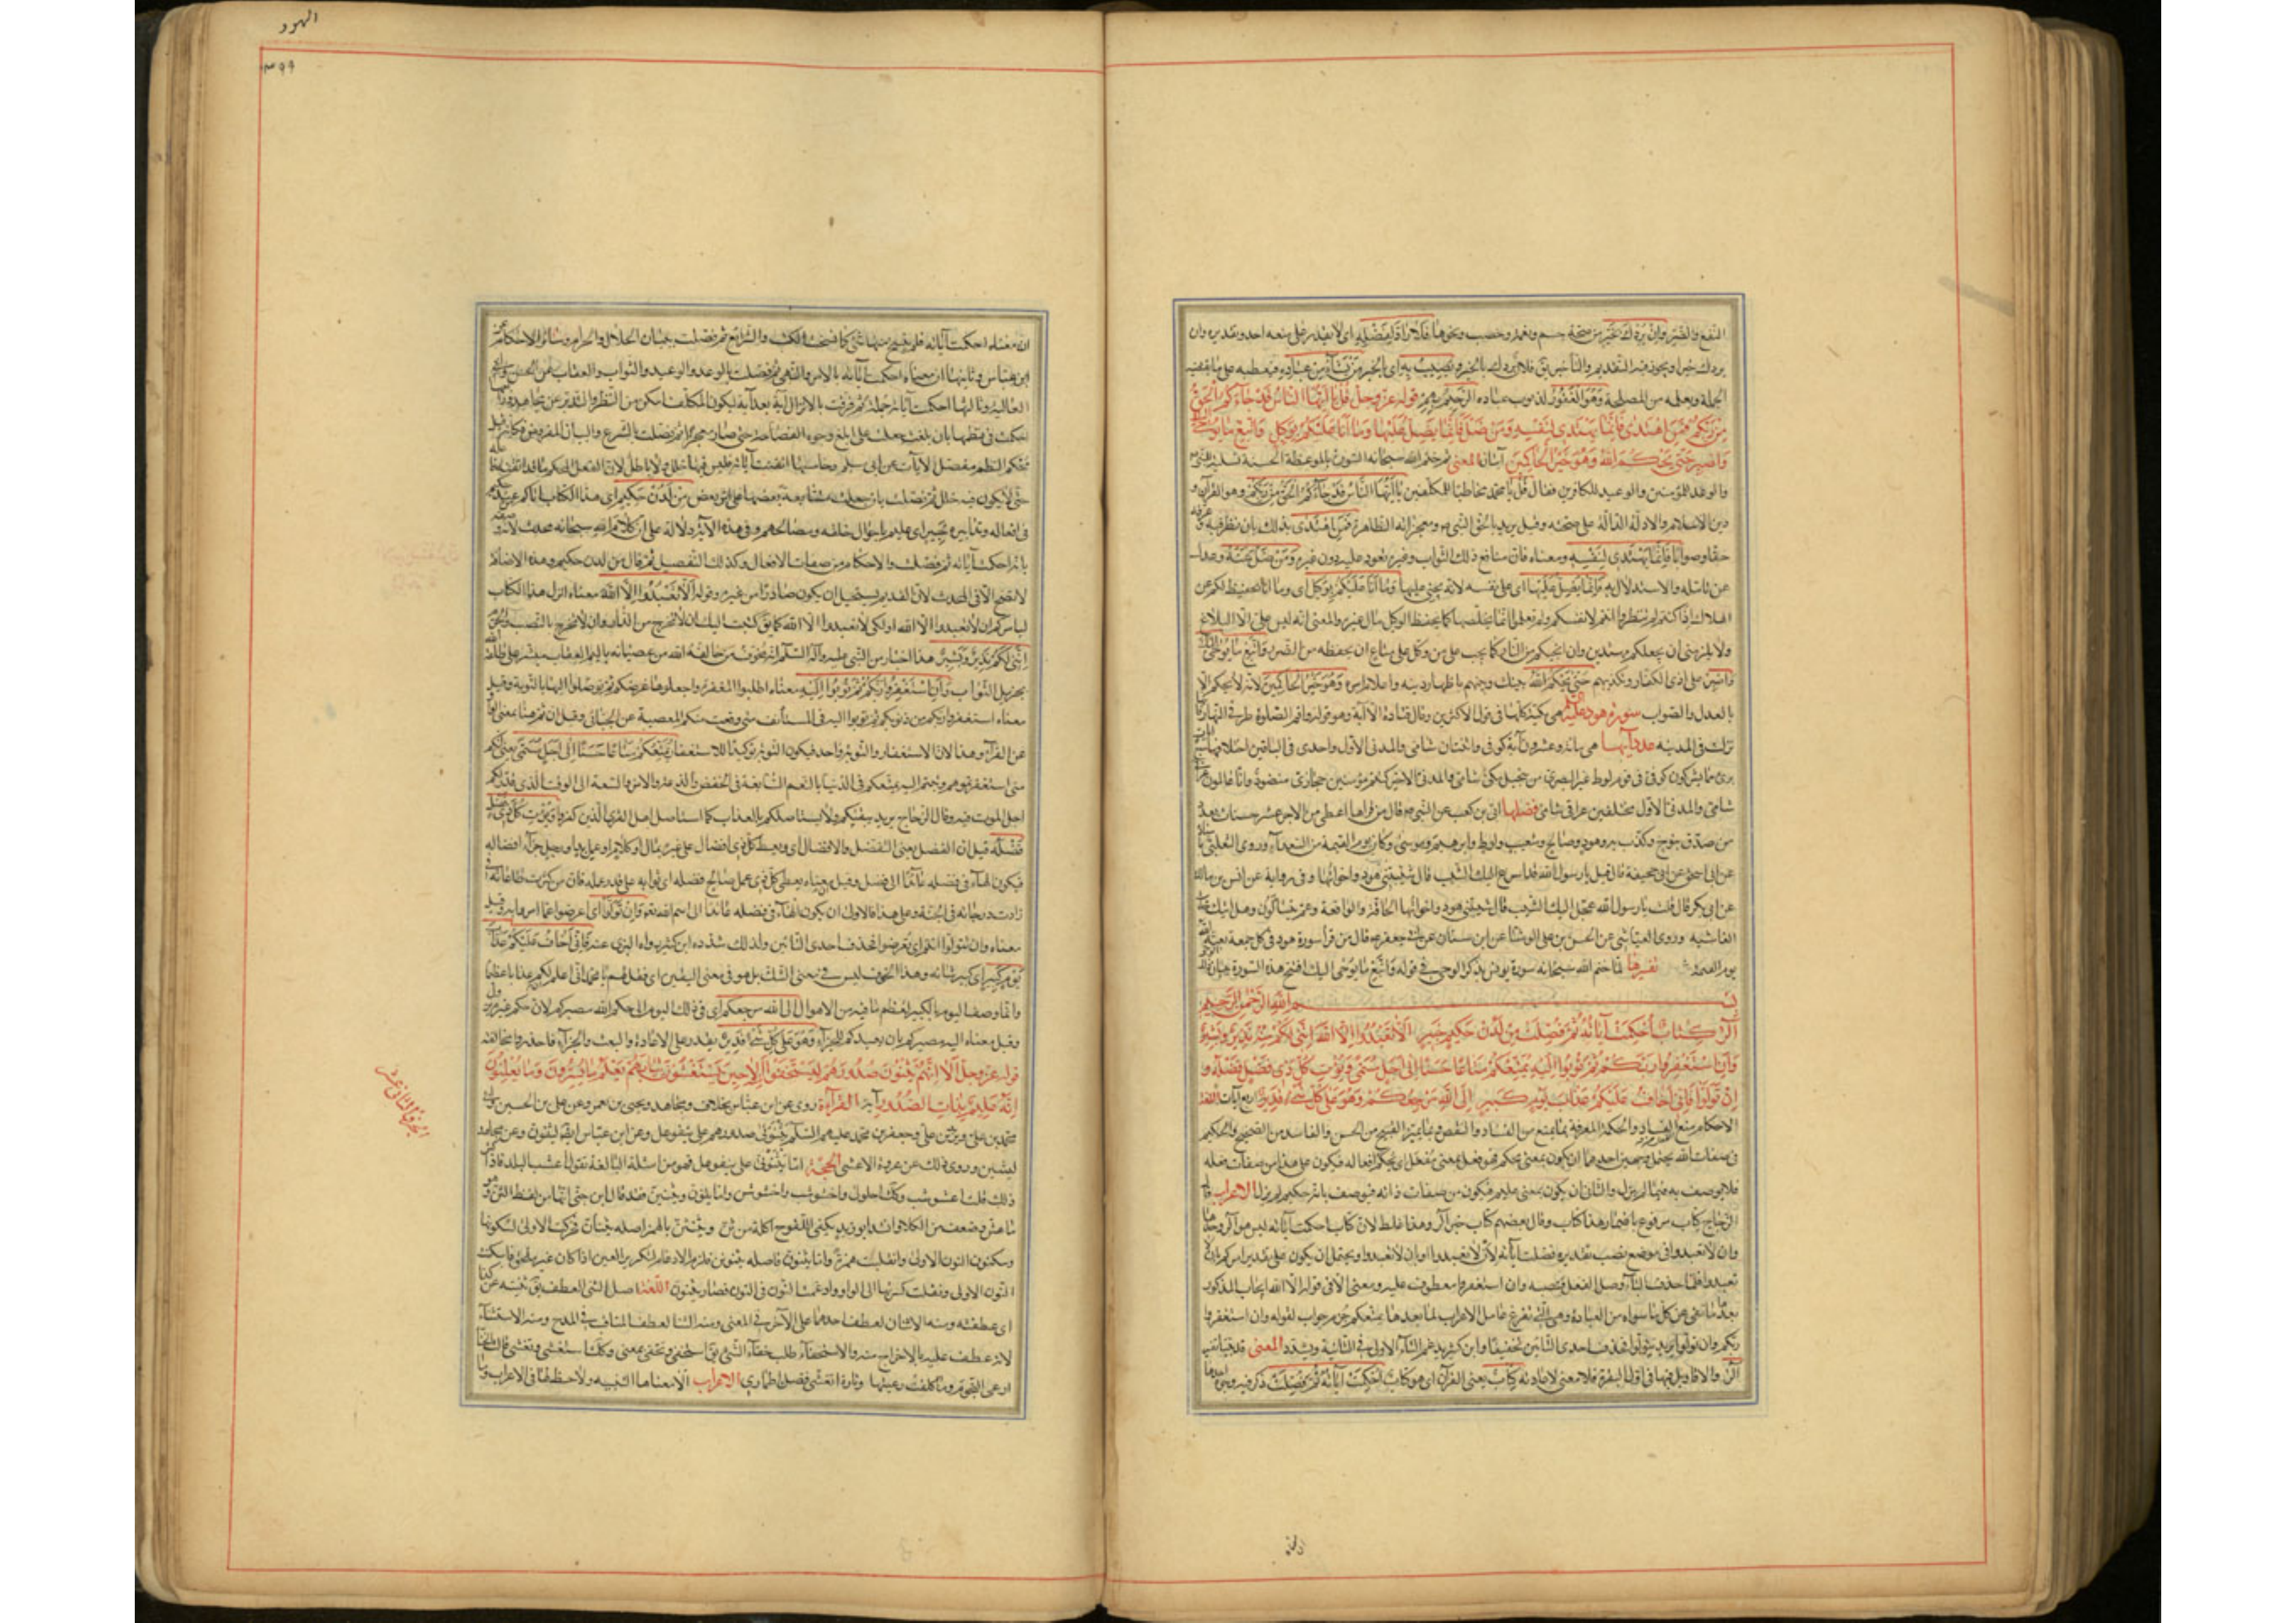 النفع والضر وان يردك بخير من صحة جسم ونعمة وخصب ونحوها فلا راد لفضله اى لا يقدر على منعه احد وتقديره وان
يردك خيرا ويجوز فيه التقديم والتأخير يق فلان يريدك بالخير ويصيب به اى بالخير من يشاء من عباده فيعطيه على ما تقتضيه
الحكمة ويعلمه من المصلحة وهو الغفور لذنوب عباده الرحيم بهم قوله عز وجل قل يا ايها الناس قد جاءكم الحق
من ربكم فمن اهتدى فانما يهتدى لنفسه ومن ضل فانما يضل عليها وما انا عليكم بوكيل واتبع ما يوحى اليك
واصبر حتى يحكم الله وهو خير الحاكمين آيتان المعنى ثم ختم الله سبحانه السورة بالموعظة الحسنة تسلية للنبى
والوعد للمؤمنين والوعيد للكافرين فقال قل يا محمد مخاطبا للمكلفين يا ايها الناس قد جاءكم الحق من ربكم وهو القرآن و
دين الاسلام والادلة الدالة على صحته وقيل يريد بالحق النبى ومعجزاته الظاهرة فمن اهتدى بذلك بان نظر فيه وعرفه
حقا وصوابا فانما يهتدى لنفسه ومعناه فان منافع ذلك الثواب وغيره يعود عليه دون غيره ومن ضل عنه وعدل
عن تأمله والاستدلال به فانما يضل عليها اى على نفسه لانه يجنى عليها وما انا عليكم بوكيل اى وما انا بحفيظ لكم عن
الهلاك اذا كنتم لم تنظروا انتم لانفسكم ولم تعملوا لما يخلصها كما يحفظ الوكيل مال غيره والمعنى انه ليس على الا البلاغ
ولا يلزمنى ان يجعلكم مهتدين وان انجيكم من النار كما يجب على من وكل على متاع ان يحفظه من الضرر واتبع ما يوحى اليك
واصبر على اذى الكفار وتكذيبهم حتى يحكم الله بينك وبينهم باظهار دينه واعلاء امره وهو خير الحاكمين لانه لا يحكم الا
بالعدل والصواب سورة هود عليه السلم هى مكية كلها فى قول الاكثرين وقال قتادة الا آية وهو قوله واقم الصلوة طرفى النهار فانها
نزلت فى المدينة عدد آيها هى مائة وعشرون آية كوفى واثنتان شامى والمدنى الاول واحدى فى الباقين اختلافها
برئ مما يشركون كوفى فى قوم لوط غير البصرى من سجيل مكى شامى والمدنى الاخير كنتم مؤمنين حجازى منضود وانا عاملون
شامى والمدنى الاول مختلفين عراقى شامى فضلها ابى بن كعب عن النبى ص قال من قرأها اعطى من الاجر عشر حسنات بعدد
من صدق بنوح وكذب به وهود وصالح وشعيب ولوط وابرهيم وموسى وكان يوم القيمة من السعداء وروى الثعلبى باسناده
عن ابى اسحق عن ابى جحيفة قال قيل يا رسول الله قد اسرع اليك الشيب قال شيبتنى هود واخواتها وفى رواية عن انس بن مالك
عن ابى بكر قال قلت يا رسول الله عجل اليك الشيب قال شيبتنى هود واخواتها الحاقة والواقعة وعم يتساءلون وهل اتيك حديث
الغاشية وروى العياشى عن الحسن بن على الوشا عن ابن سنان عن ابى جعفر ع قال من قرأ سورة هود فى كل جمعة بعثه الله
تفسيرها لما ختم الله سبحانه سورة يونس بذكر الوحى فى قوله واتبع ما يوحى اليك افتتح هذه السورة ببيان
بسم الله الرحمن الرحيم
الر كتاب احكمت آياته ثم فصلت من لدن حكيم خبير الا تعبدوا الا الله اننى لكم منه نذير وبشير
وان استغفروا ربكم ثم توبوا اليه يمتعكم متاعا حسنا الى اجل مسمى ويؤت كل ذى فضل فضله و
ان تولوا فانى اخاف عليكم عذاب يوم كبير الى الله مرجعكم وهو على كل شىء قدير اربع آيات اللغة
الاحكام منع الفساد والحكمة المعرفة بما يمنع من الفساد والنقص وبما يميز القبيح من الحسن والفاسد من الصحيح والحكيم
فى صفات الله يحتمل وجهين احدهما ان يكون بمعنى محكم فهو فعيل بمعنى مفعل اى محكم افعاله فيكون على هذا من صفات فعله
فلا يوصف به فيما لم يزل والثانى ان يكون بمعنى عليم فيكون من صفات ذاته فيوصف بانه حكيم لم يزل الاعراب قال
الزجاج كتاب مرفوع باضمار هذا كتاب وقال بعضهم كتاب خبر الر وهذا غلط لان كتاب احكمت آياته ليس هو الر وحدها
وان لا تعبدوا فى موضع نصب تقديره فصلت آياته لان لا تعبدوا او بان لا تعبدوا ويحتمل ان يكون على تقدير امركم ان لا
تعبدوا فلما حذف الباء وصل الفعل فنصبه وان استغفروا معطوف عليه ومعنى الا فى قوله الا الله ايجاب المذكور
بعدها ما نفى عن كل ما سواه من العبادة وهى التى تفرغ عامل الاعراب لما بعدها يمتعكم جزم جواب لقوله وان استغفروا
ربكم وان تولوا يريد تتولوا فحذف احدى التائين تخفيفا وابن كثير يدغم التاء الاولى فى الثانية ويشدد المعنى قد بينا تفسير
الر والاقاويل فيها فى اول البقرة فلا معنى لاعادته كتاب يعنى القرآن اى هو كتاب احكمت آياته ثم فصلت ذكر فيه وجوه احدها
الهود
٣٩٩
ان معناه احكمت آياته فلم ينسخ منها شىء كما نسخت الكتب والشرائع ثم فصلت ببيان الحلال والحرام وسائر الاحكام عن
ابن عباس وثانيها ان معناه احكمت آياته بالامر والنهى ثم فصلت بالوعد والوعيد والثواب والعقاب عن الحسن وابى
العالية وثالثها احكمت آياته جملة ثم فرقت بالانزال آية بعد آية ليكون المكلف امكن من النظر والتدبر عن مجاهد ورابعها
احكمت فى نظمها بان جعلت على ابلغ وجوه الفصاحة حتى صار معجزا ثم فصلت بالشرع والبيان المفروض فكانه قيل
محكم النظم مفصل الآيات عن ابى مسلم وخامسها اتقنت آياته فليس فيها خلل ولا باطل لان الفعل المحكم ما قد اتقنه فاعله
حتى لا يكون فيه خلل ثم فصلت بان جعلت متتابعة بعضها على اثر بعض من لدن حكيم اى هذا الكتاب اتاكم من عند حكيم
فى افعاله وتدابيره خبير اى عليم باحوال خلقه ومصالحهم وفى هذه الآية دلالة على ان كلام الله سبحانه محدث لانه وصفه
بانه احكمت آياته ثم فصلت والاحكام من صفات الافعال وكذلك التفصيل ثم قال من لدن حكيم وهذه الاضافة
لا تصح الا فى المحدث لان القديم يستحيل ان يكون صادرا من غيره وقوله الا تعبدوا الا الله معناه انزل هذا الكتاب
ليامركم ان لا تعبدوا الا الله او لكى لا تعبدوا الا الله كما يق كتبت اليك ان لا تخرج من الدار وان لا تخرج بالنصب والجزم
اننى لكم نذير وبشير هذا اخبار من النبى عليه وآله السلم انه مخوف من مخالفة الله من عصيانه باليم العقاب مبشر على طاعة الله
بجزيل الثواب وان استغفروا ربكم ثم توبوا اليه معناه اطلبوا المغفرة واجعلوها غرضكم ثم توصلوا اليها بالتوبة وقيل
معناه استغفروا ربكم من ذنوبكم ثم توبوا اليه فى المستأنف متى وقعت منكم المعصية عن الجبائى وقيل ان ثم هنا بمعنى الواو
عن الفراء وهذا لان الاستغفار والتوبة واحد فيكون التوبة توكيدا للاستغفار يمتعكم متاعا حسنا الى اجل مسمى يعنى انكم
متى استغفرتموه وتبتم اليه يمتعكم فى الدنيا بالنعم السابغة فى الخفض والدعة والامن والسعة الى الوقت الذى قدر لكم
اجل الموت فيه وقال الزجاج يريد يبقيكم ولا يستاصلكم بالعذاب كما استاصل اهل القرى الذين كفروا ويؤت كل ذى فضل
فضله قيل ان الفضل بمعنى التفضل والافضال اى ويعط كل ذى افضال على غيره بمال او كلام او عمل بيد او رجل جزاء افضاله
فيكون الهاء فى فضله عائدا الى ذى الفضل وقيل معناه يعطى كل ذى عمل صالح فضله اى ثوابه على قدر عمله فان من كثرت طاعاته فى
زادت درجاته فى الجنة وعلى هذا فالاولى ان يكون الهاء فى فضله عائدا الى اسم الله تعم وان تولوا اى اعرضوا عما امروا به وقيل
معناه وان تتولوا انتم اى تعرضوا فحذف احدى التائين ولذلك شدده ابن كثير برواية البزى عنه فانى اخاف عليكم عذاب
يوم كبير اى كبير شانه وهذا الخوف ليس فى معنى الشك بل هو فى معنى اليقين اى فقل لهم يا محمد انى اعلم ان لكم عذابا عظيما
وانما وصف اليوم بالكبير لعظم ما فيه من الاهوال الى الله مرجعكم اى فى ذلك اليوم الى حكم الله مصيركم لان حكم غيره يزول
وقيل معناه اليه مصيركم بان يعيدكم للجزاء وهو على كل شىء قدير يقدر على الاعادة والبعث والجزاء فاحذروا مخالفته
قوله عز وجل الا انهم يثنون صدورهم ليستخفوا منه الا حين يستغشون ثيابهم يعلم ما يسرون وما يعلنون
انه عليم بذات الصدور آية القراءة روى عن ابن عباس بخلاف ومجاهد ويحيى بن يعمر وعن على بن الحسين و
محمد بن على وزيد بن على وجعفر بن محمد عليهم السلم يثنونى صدورهم على يفعوعل وعن ابن عباس ايضا ليثنون وعن مجاهد
ليثنئن وروى ذلك عن عروة الاعشى الحجة اما يثنونى على يفعوعل فهو من امثلة المبالغة تقول اعشب البلد فاذا كثر
ذلك قلت اعشوشب وكك احلولى واخشوشب واخشوشن واما يثنئن ويثنون فقد قال ابن جنى انهما من لفظ الثن وهو
ما هش وضعف من الكلاء وانشد ابو زيد يكفى اللقوح اكلة من ثن ويثنئن بالهمز اصله يثنان فحركت الالف لسكونها
وسكون النون الاولى وانقلبت همزة واما يثنون فاصله يثنونن فلزم الادغام لتكرير العين اذا كان غير ملحق فاسكنت
النون الاولى ونقلت كسرتها الى الواو وادغمت النون فى النون فصار يثنون اللغة اصل الثنى العطف يق ثنيته عن كذا
اى عطفته ومنه الاثنان لعطف احدهما على الآخر فى المعنى ومنه الثناء لعطف المناقب فى المدح ومنه الاستثناء
لانه عطف عليه بالاخراج منه والاستخفاء طلب خفاء الشىء يق استخفى وتخفى بمعنى وكذا استغشى وتغشى قالت الخنساء
ارعى النجوم وما كلفت رعيتها وتارة اتغشى فضل اطمارى الاعراب الا معناها التنبيه ولا حظ لها فى الاعراب وما
الجزء الثانى عشر